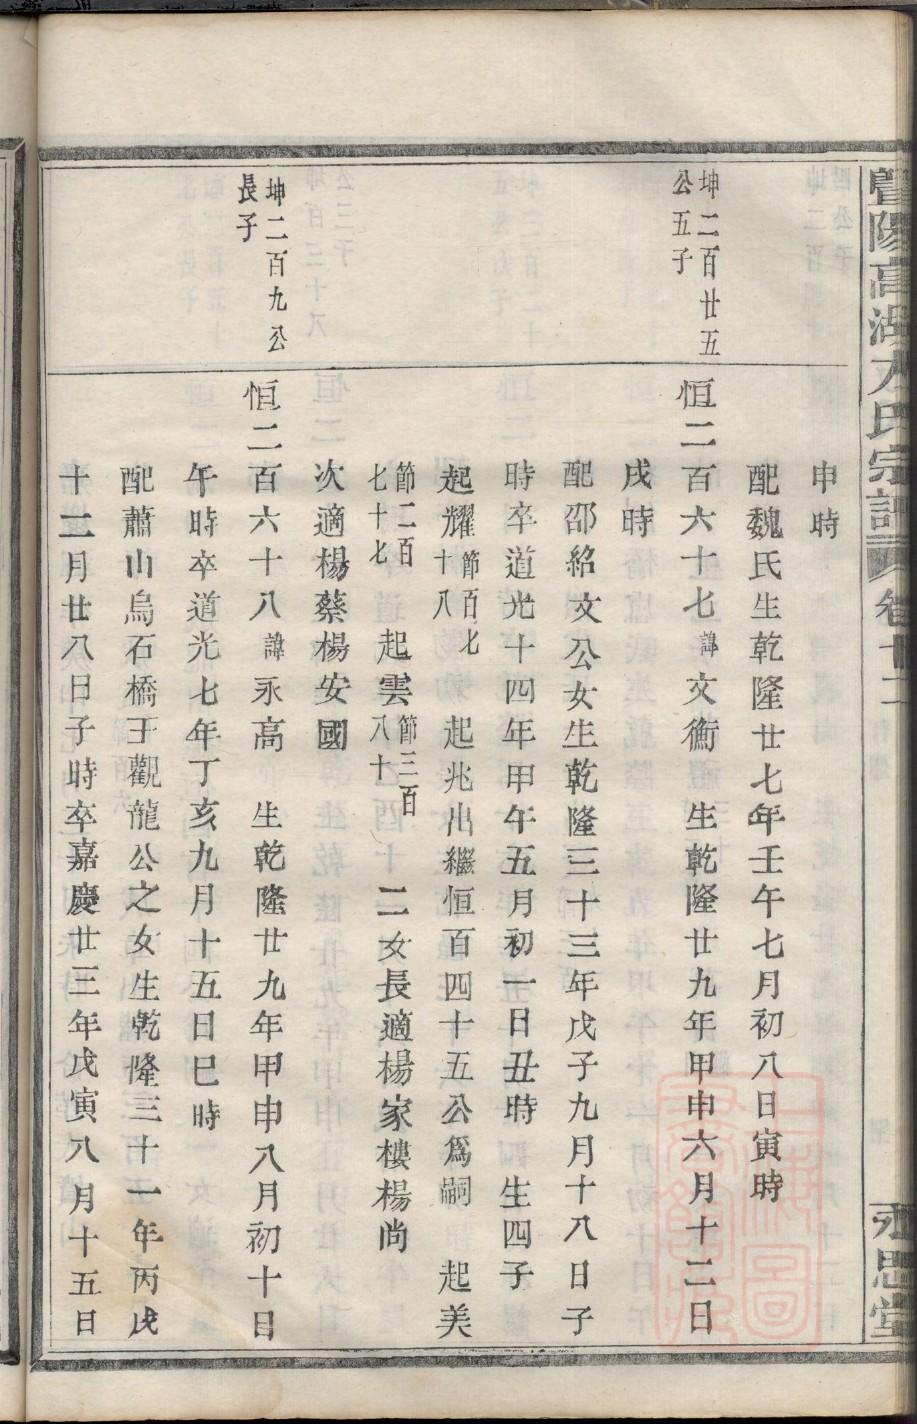 暨陽高湖方氏宗譜 卷十二 永思堂
申時
配魏氏生乾隆廿七年壬午七月初八日寅時
坤二百廿五
公五子
恒二百六十七諱文衡 生乾隆廿九年甲申六月十二日
戌時
配邵紹文公女生乾隆三十三年戊子九月十八日子
時卒道光十四年甲午五月初一日丑時 生四子
起耀節百七十八 起兆出繼恒百四十五公爲嗣 起美
節二百七十七 起雲節三百八十 二女長適楊家樓楊尚
次適楊蔡楊安國
坤二百九公
長子
恒二百六十八諱永高 生乾隆廿九年甲申八月初十日
午時卒道光七年丁亥九月十五日巳時
配蕭山烏石橋王觀龍公之女生乾隆三十一年丙戌
十二月廿八日子時卒嘉慶廿三年戊寅八月十五日